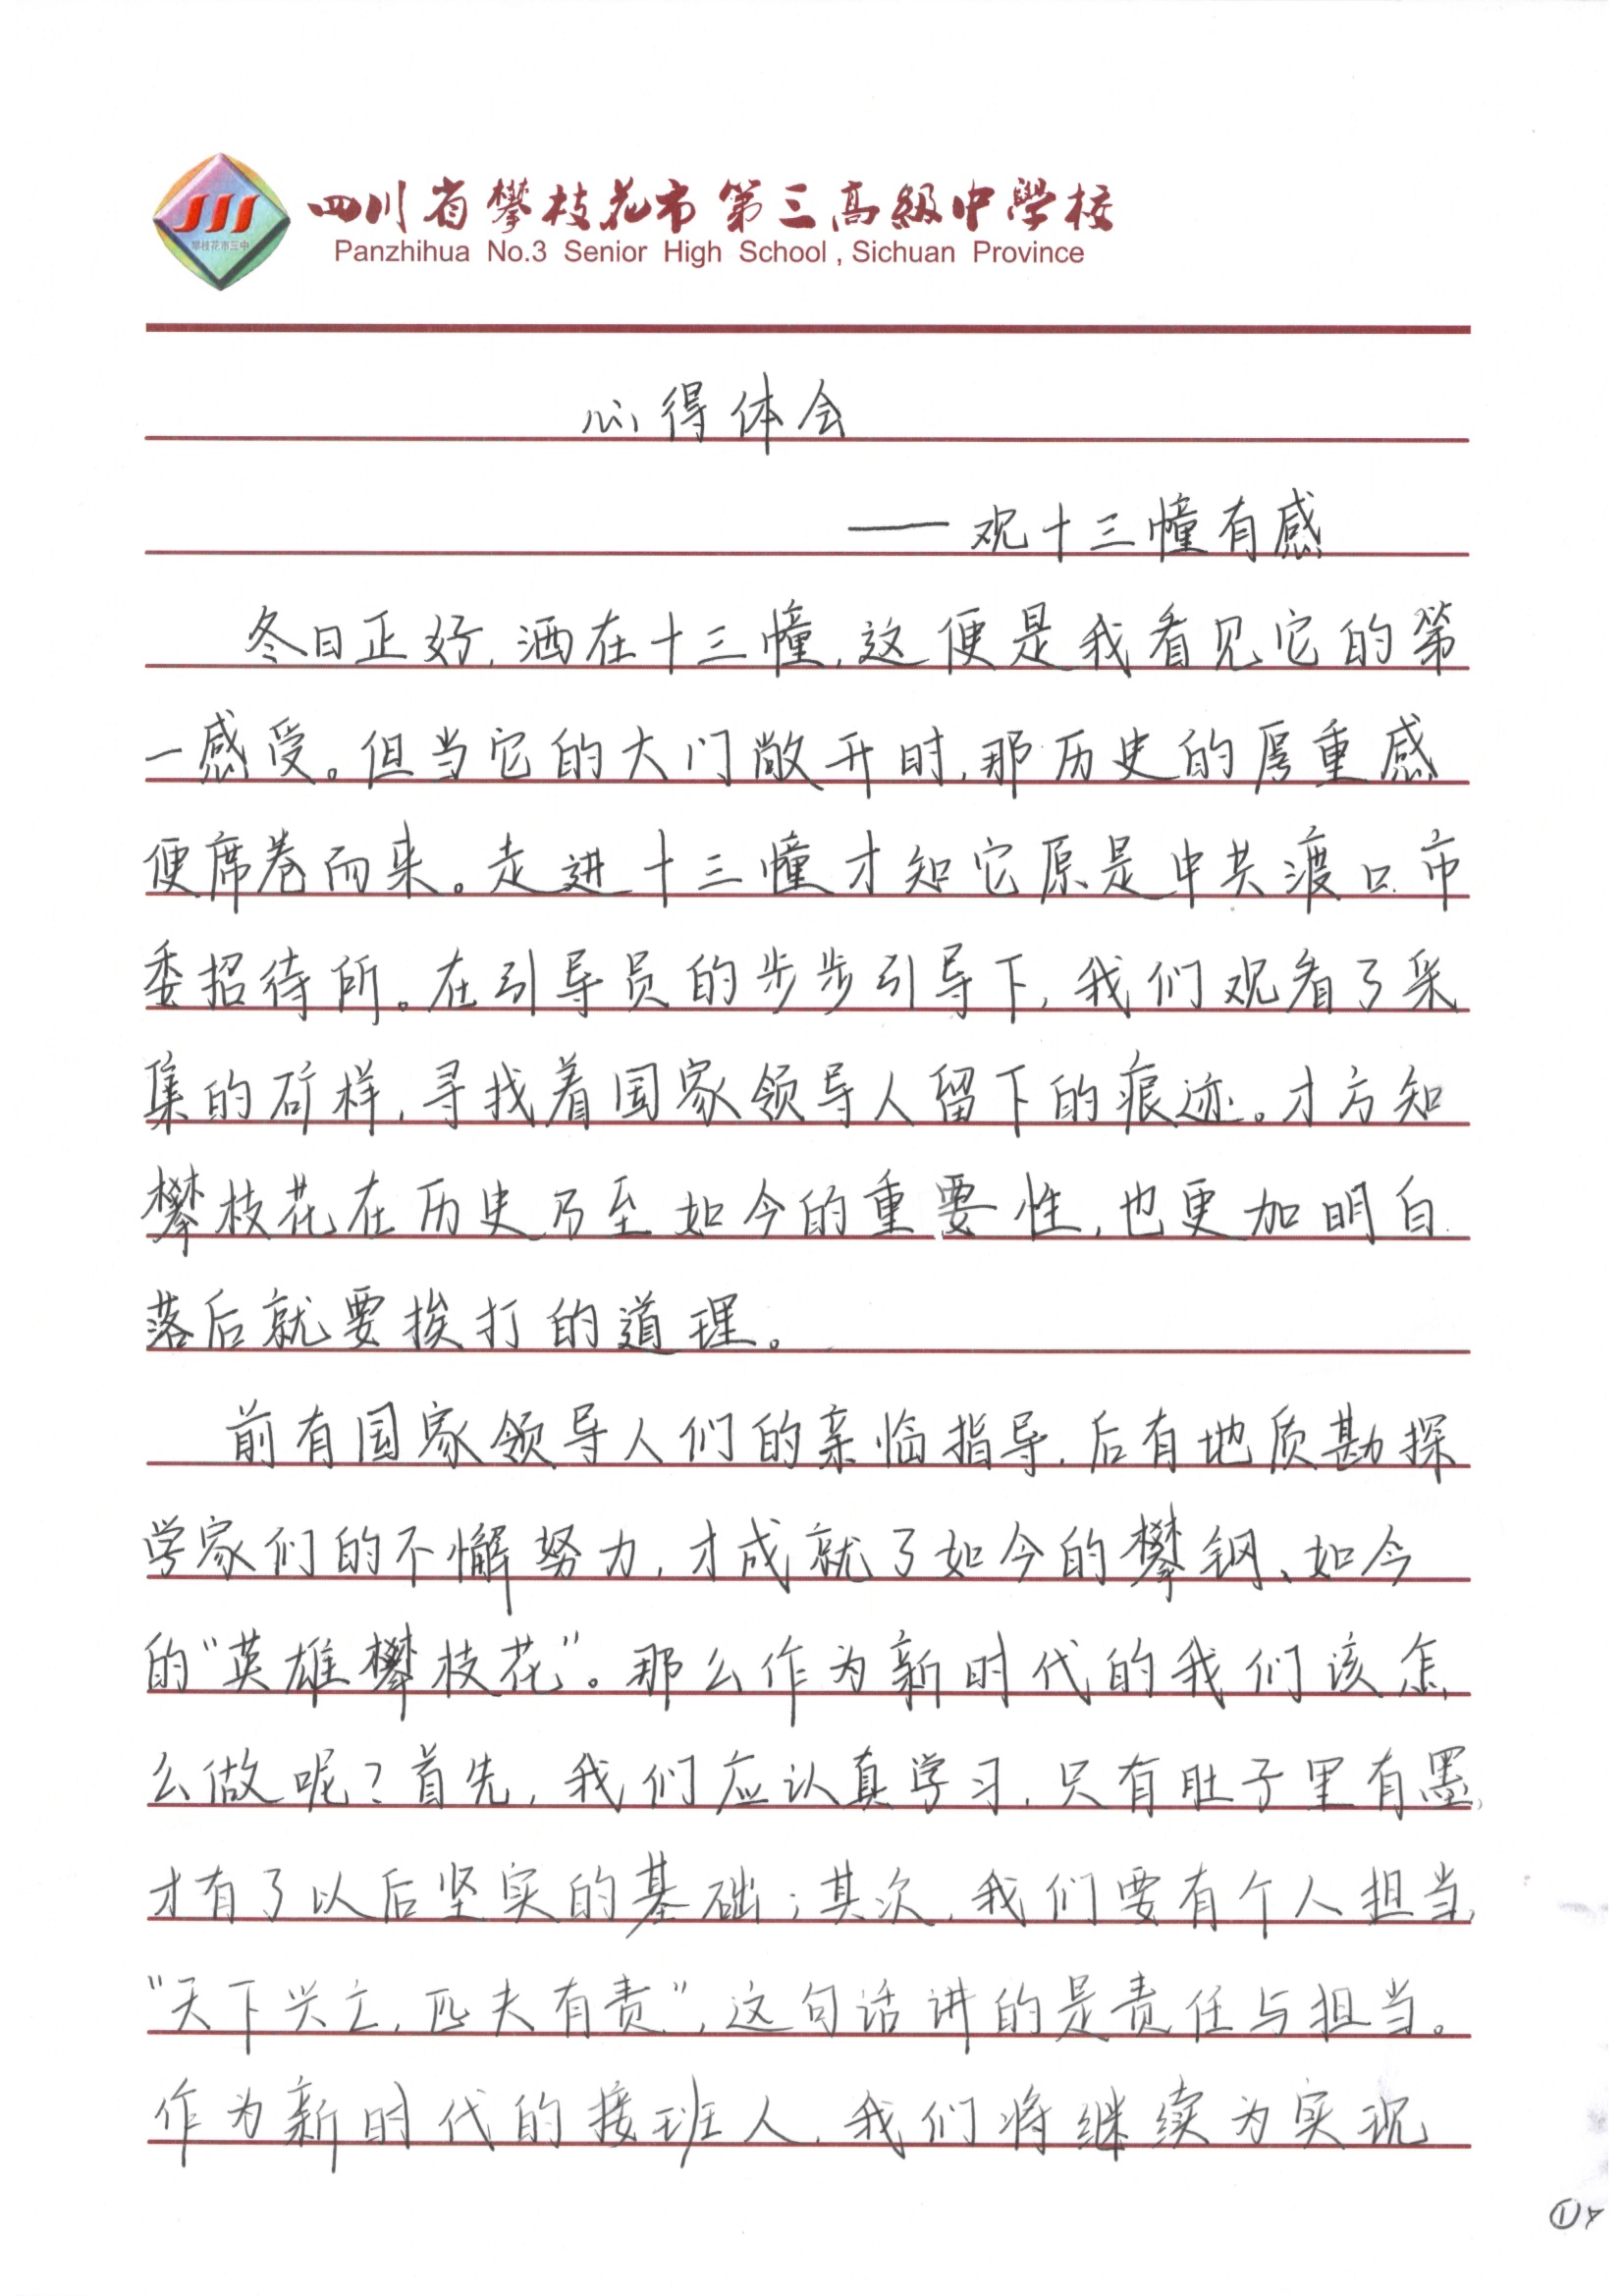 四川省攀枝花市第三高級中學校
攀枝花市三中
Panzhihua No.3 Senior High School, Sichuan Province
心得体会
——观十三幢有感
冬日正好,洒在十三幢,这便是我看见它的第
一感受。但当它的大门敞开时,那历史的厚重感
便席卷而来。走进十三幢才知它原是中共渡口市
委招待所。在引导员的步步引导下,我们观看了采
集的矿样,寻找着国家领导人留下的痕迹。才方知
攀枝花在历史乃至如今的重要性,也更加明白
落后就要挨打的道理。
前有国家领导人们的亲临指导,后有地质勘探
学家们的不懈努力,才成就了如今的攀钢、如今
的“英雄攀枝花”。那么作为新时代的我们该怎
么做呢?首先,我们应认真学习,只有肚子里有墨,
才有了以后坚实的基础;其次,我们要有个人担当,
“天下兴亡,匹夫有责”,这句话讲的是责任与担当。
作为新时代的接班人,我们将继续为实现
①